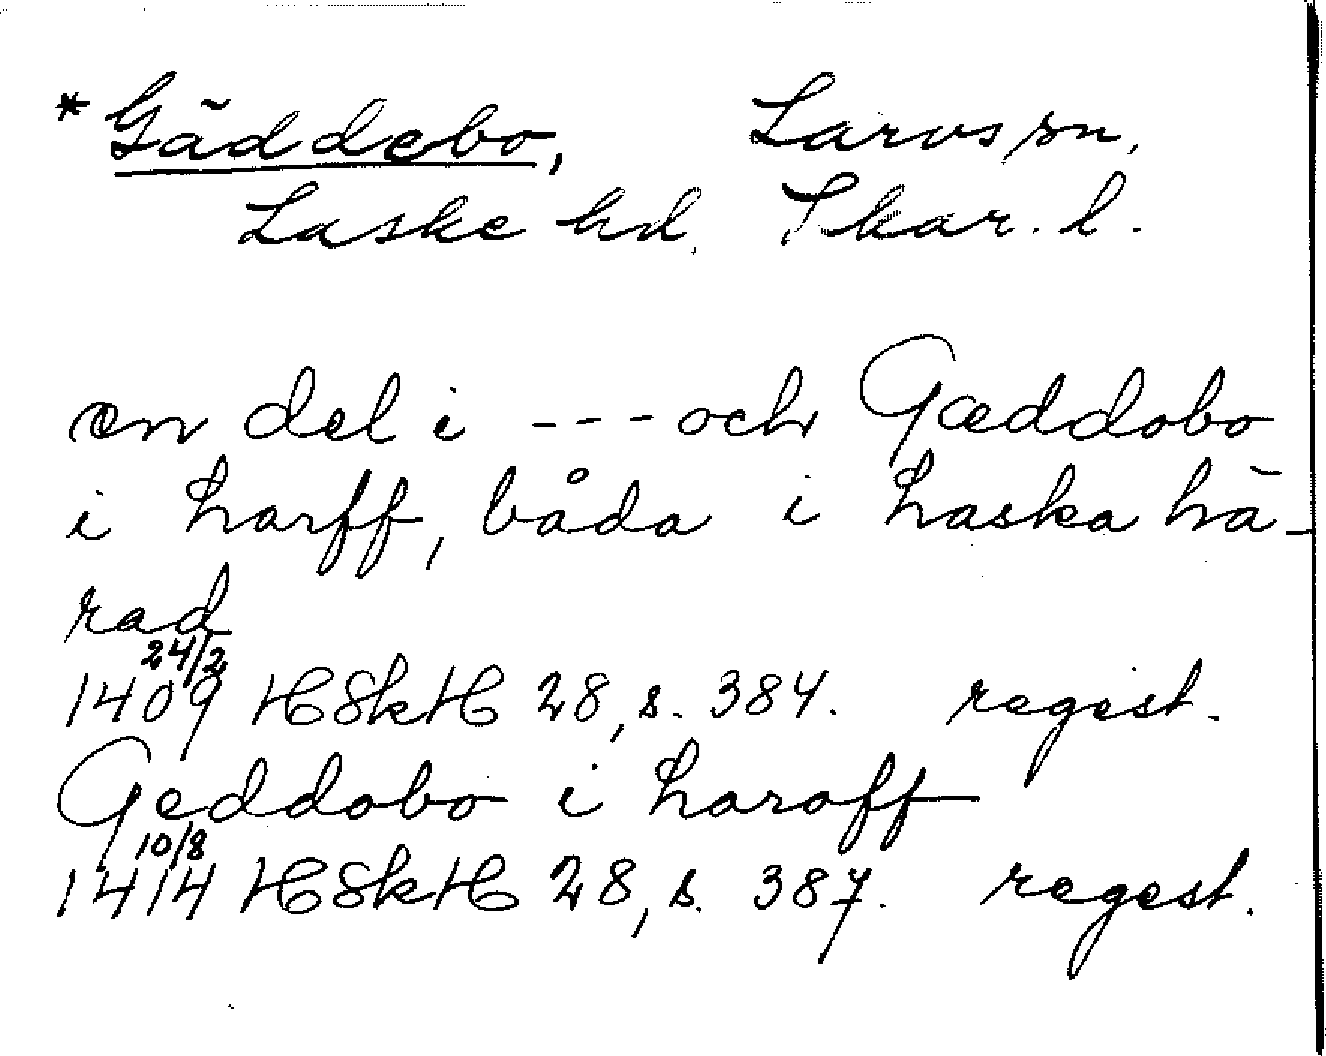 *Gäddebo, Larvs sn,
Laske hd. Skar. l.
en del i --- och Gæddobo
i Larff, båda i Laska hä-
rad
24/2
1409 HSkH 28, s. 384. regest.
Geddobo i Laroff
10/8
1414 HSkH 28, s. 387. regest.